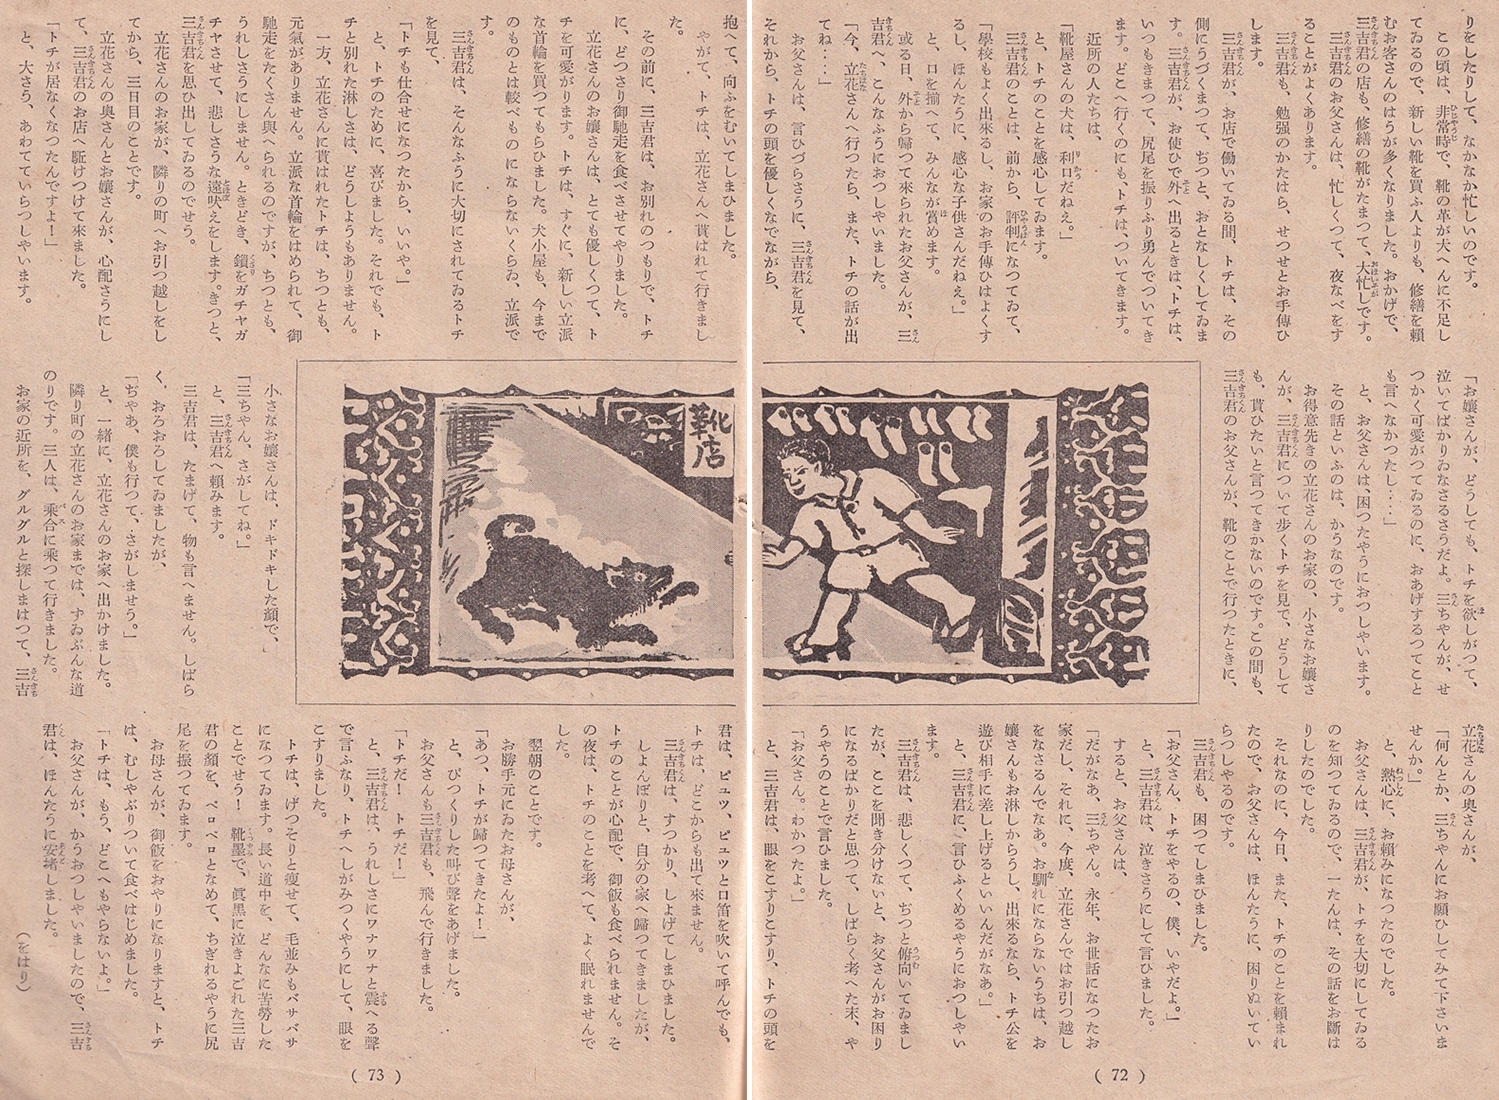 りをしたりして、なかなか忙しいのです。
この頃は、非常時で、靴の革が大へんに不足し
てゐるので、新しい靴を買ふ人よりも、修繕を賴
むお客さんのはうが多くなりました。おかげで、
三吉君の店も、修繕の靴がたまつて、大忙しです。
三吉君のお父さんは、忙しくつて、夜なべをす
ることがよくあります。
三吉君も、勉强のかたはら、せつせとお手傳ひ
します。
三吉君が、お店で働いてゐる間、トチは、その
側にうづくまつて、ぢつと、おとなしくしてゐま
す。三吉君が、お使ひで外へ出るときは、トチは、
いつもきまつて、尻尾を振りふり勇んでついてき
ます。どこへ行くのにも、トチは、ついてきます。
近所の人たちは、
「靴屋さんの犬は、利口だねえ。」
と、トチのことを感心してゐます。
三吉君のことは、前から、評判になつてゐて、
「學校もよく出來るし、お家のお手傳ひはよくす
るし、ほんたうに、感心な子供さんだねえ。」
と、口を揃へて、みんなが賞めます。
或る日、外から歸つて來られたお父さんが、三
吉君へ、こんなふうにおつしやいました。
「今、立花さんへ行つたら、また、トチの話が出
てね・・・」
お父さんは、言ひづらさうに、三吉君を見て、
それから、トチの頭を優しくなでながら、
「お孃さんが、どうしても、トチを欲しがつて、
泣いてばかりゐなさるさうだよ。三ちやんが、せ
つかく可愛がつてゐるのに、おあげするつてこと
も言へなかつたし・・・」
と、お父さんは、困つたやうにおつしやいます。
その話といふのは、かうなのです。
お得意先きの立花さんのお家の、小さなお孃さ
んが、三吉君について步くトチを見て、どうして
も、貰ひたいと言つてきかないのです。この間も、
三吉君のお父さんが、靴のことで行つたときに、
立花さんの奥さんが、
「何んとか、三ちやんにお願ひしてみて下さいま
せんか。」
と、熱心に、お賴みになつたのでした。
お父さんは、三吉君が、トチを大切にしてゐる
のを知つてゐるので、一たんは、その話をお斷は
りしたのでした。
それなのに、今日、また、トチのことを賴まれ
たので、お父さんは、ほんたうに、困りぬいてい
らつしやるのです。
三吉君も、困つてしまひました。
「お父さん、トチをやるの、僕、いやだよ。」
と、三吉君は、泣きさうにして言ひました。
すると、お父さんは、
「だがなあ、三ちやん。永年、お世話になつたお
家だし、それに、今度、立花さんではお引つ越し
をなさるんでなあ。お馴れにならないうちは、お
孃さんもお淋しからうし、出來るなら、トチ公を
遊び相手に差し上げるといいんだがなあ。」
と、三吉君に、言ひふくめるやうにおつしやい
ます。
三吉君は、悲しくつて、ぢつと俯向いてゐまし
たが、ここを聞き分けないと、お父さんがお困り
になるばかりだと思つて、しばらく考へた末、や
うやうのことで言ひました。
「お父さん。わかつたよ。」
と、三吉君は、眼をこすりこすり、トチの頭を
抱へて、向ふをむいてしまひました。
やがて、トチは、立花さんへ貰はれて行きまし
た。
その前に、三吉君は、お別れのつもりで、トチ
に、どつさり御馳走を食べさせてやりました。
立花さんのお孃さんは、とても優しくつて、ト
チを可愛がります。トチは、すぐに、新しい立派
な首輪を買つてもらひました。犬小屋も、今まで
のものとは較べものにならないくらゐ、立派で
す。
三吉君は、そんなふうに大切にされてゐるトチ
を見て、
「トチも仕合せになつたから、いいや。」
と、トチのために、喜びました。それでも、ト
チと別れた淋しさは、どうしようもありません。
一方、立花さんに貰はれたトチは、ちつとも、
元氣がありません。立派な首輪をはめられて、御
馳走をたくさん與へられるのですが、ちつとも、
うれしさうにしません。ときどき、鎖をガチヤガ
チヤさせて、悲しさうな遠吠えをします。きつと、
三吉君を思ひ出してゐるのでせう。
立花さんのお家が、隣りの町へお引つ越しをし
てから、三日目のことです。
立花さんの奥さんとお孃さんが、心配さうにし
て、三吉君のお店へ駈けつけて來ました。
「トチが居なくなつたんですよ！」
と、大さう、あわてていらつしやいます。
靴店
小さなお孃さんは、ドキドキした顔で、
「三ちやん、さがしてね。」
と、三吉君へ賴みます。
三吉君は、たまげて、物も言へません。しばら
く、おろおろしてゐましたが、
「ぢやあ、僕も行つて、さがしませう。」
と、一緖に、立花さんのお家へ出かけました。
隣り町の立花さんのお家までは、ずゐぶんな道
のりです。三人は、乘合に乘つて行きました。
お家の近所を、グルグルと探しまはつて、三吉
君は、ピユツ、ピユツと口笛を吹いて呼んでも、
トチは、どこからも出て來ません。
三吉君は、すつかり、しよげてしまひました。
しよんぼりと、自分の家へ歸つてきましたが、
トチのことが心配で、御飯も食べられません。そ
の夜は、トチのことを考へて、よく眠れませんで
した。
翌朝のことです。
お勝手元にゐたお母さんが、
「あつ、トチが歸つてきたよ！」
と、びつくりした叫び聲をあげました。
お父さんも三吉君も、飛んで行きました。
「トチだ！　トチだ！」
と、三吉君は、うれしさにワナワナと震へる聲
で言ふなり、トチへしがみつくやうにして、眼を
こすりました。
トチは、げつそりと瘦せて、毛並みもバサバサ
になつてゐます。長い道中を、どんなに苦勞した
ことでせう！　靴墨で、眞黑に泣きよごれた三吉
君の顔を、ペロペロとなめて、ちぎれるやうに尻
尾を振つてゐます。
お母さんが、御飯をおやりになりますと、トチ
は、むしやぶりついて食べはじめました。
「トチは、もう、どこへもやらないよ。」
お父さんが、かうおつしやいましたので、三吉
君は、ほんたうに安堵しました。
（をはり）
( 73 )
( 72 )